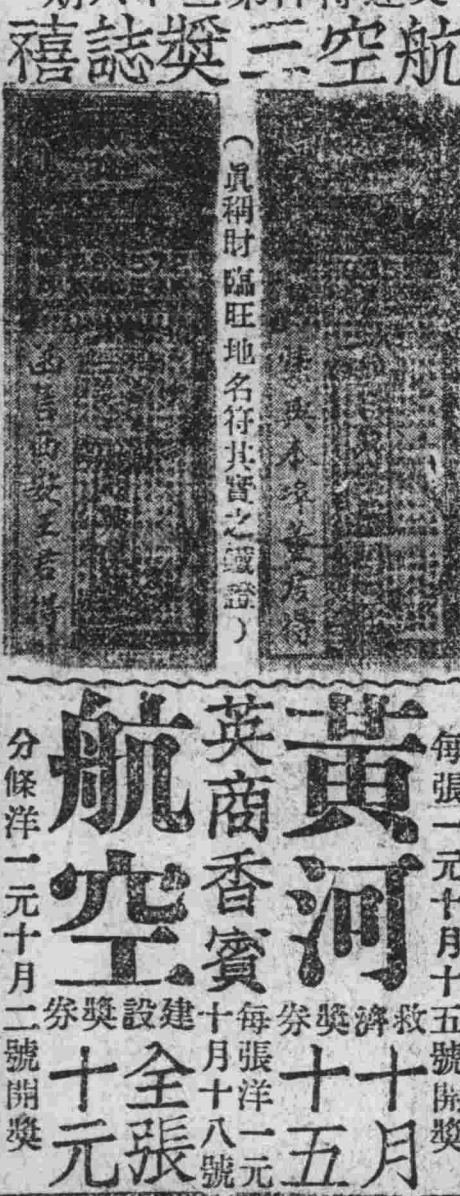 航空三獎誌禧
（眞稱財臨旺地名符其實之鐵證）
與本埠董君得
王君得
每張一元十月十五號開獎
黃河
救濟獎券
十月
十五
英商香賓
每張洋一元
十月十八號
航空
建設獎券
全張
十元
分條洋一元十月二號開獎